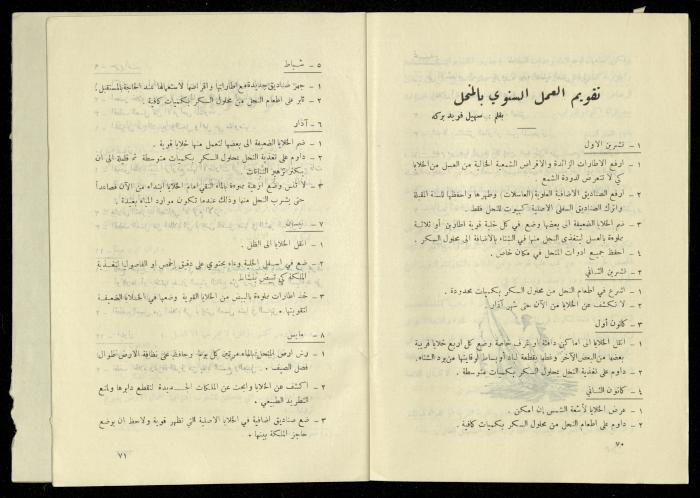 تقويم العمل السنوي بالمنحل
بقلم : سهيل فريد بركه
١ – تشرين الاول
١ – ارفع الاطارات الزائدة والاقراص الشمعية الخالية من العسل من الخلايا
كي لا تتعرض لدودة الشمع .
٢ – ارفع الصناديق الاضافية العلوية (العاسلات) وطهرها واحفظها للسنة المقبلة
واترك الصناديق السفلى الاصلية كبيوت للنحل فقط .
٣ – ضم الخلايا الضعيفة الى بعضها وضع في كل خلية قوية اطارين او ثلاثة
مملوءة بالعسل ليتغذى النحل منها في الشتاء بالاضافة الى محلول السكر .
٤ – احفظ جميع ادوات المنحل في مكان خاص .
٢ – تشرين الثاني
١ – اشرع في اطعام النحل من محلول السكر بكميات محدودة .
٢ – لا تكشف عن الخلايا من الآن حتى شهر آذار .
٣ – كانون أول
١ – انقل الخلايا الى اماكن دافئة أو بغرف خاصة وضع كل اربع خلايا قريبة
بعضها من البعض الآخر وغطها بقطعة لباد أو بساط لوقايتها من برد الشتاء.
٢ – داوم على تغذية النحل بمحلول السكر بكميات متوسطة .
٤ – كانون الثاني
١ – عرض الخلايا لأشعة الشمس إن امكن .
٢ – داوم على اطعام النحل من محلول السكر بكميات كافية .
٧٠
٥ – شباط
١ – جهز صناديق جديدة مع اطاراتها واقراصها لاستعمالها عند الحاجة بالمستقبل.
٢ – ثابر على اطعام النحل من محلول السكر بكميات كافية .
٦ – آذار
١ – ضم الخلايا الضعيفة الى بعضها لتعمل منها خلايا قوية .
٢ – داوم على تغذية النحل بمحلول السكر بكميات متوسطة ثم قليلة الى ان
يكثر تزهير النباتات .
٣ – لا تنس وضع اوعية مملوءة بالماء النقي امام الخلايا ابتداء من الآن فصاعداً
حتى يشرب النحل منها وذلك عندما تكون موارد المياه بعيدة .
٧ – نيسان
١ – انقل الخلايا الى الظل .
٢ – ضع في اسفل الخلية وعاء يحتوي على دقيق الحمص او الفاصوليا لتغذية
الملكة كي تبيض بنشاط .
٣ – خذ اطارات مملوءة بالبيض من الخلايا القوية وضعها في الخلايا الضعيفة
لتقويتها .
٨ – مايس
١ – رش ارض المنحل بالماء مرتين كل يوم وحافظ على نظافة الارض طوال
فصل الصيف .
٢ – اكشف عن الخلايا وابحث عن الملكات الجديدة لتقطع دابرها ولمنع
التطريد الطبيعي .
٣ – ضع صناديق اضافية في الخلايا الاصلية التي تظهر قوية ولاحظ ان يوضع
حاجز الملكة بينها .
٧١